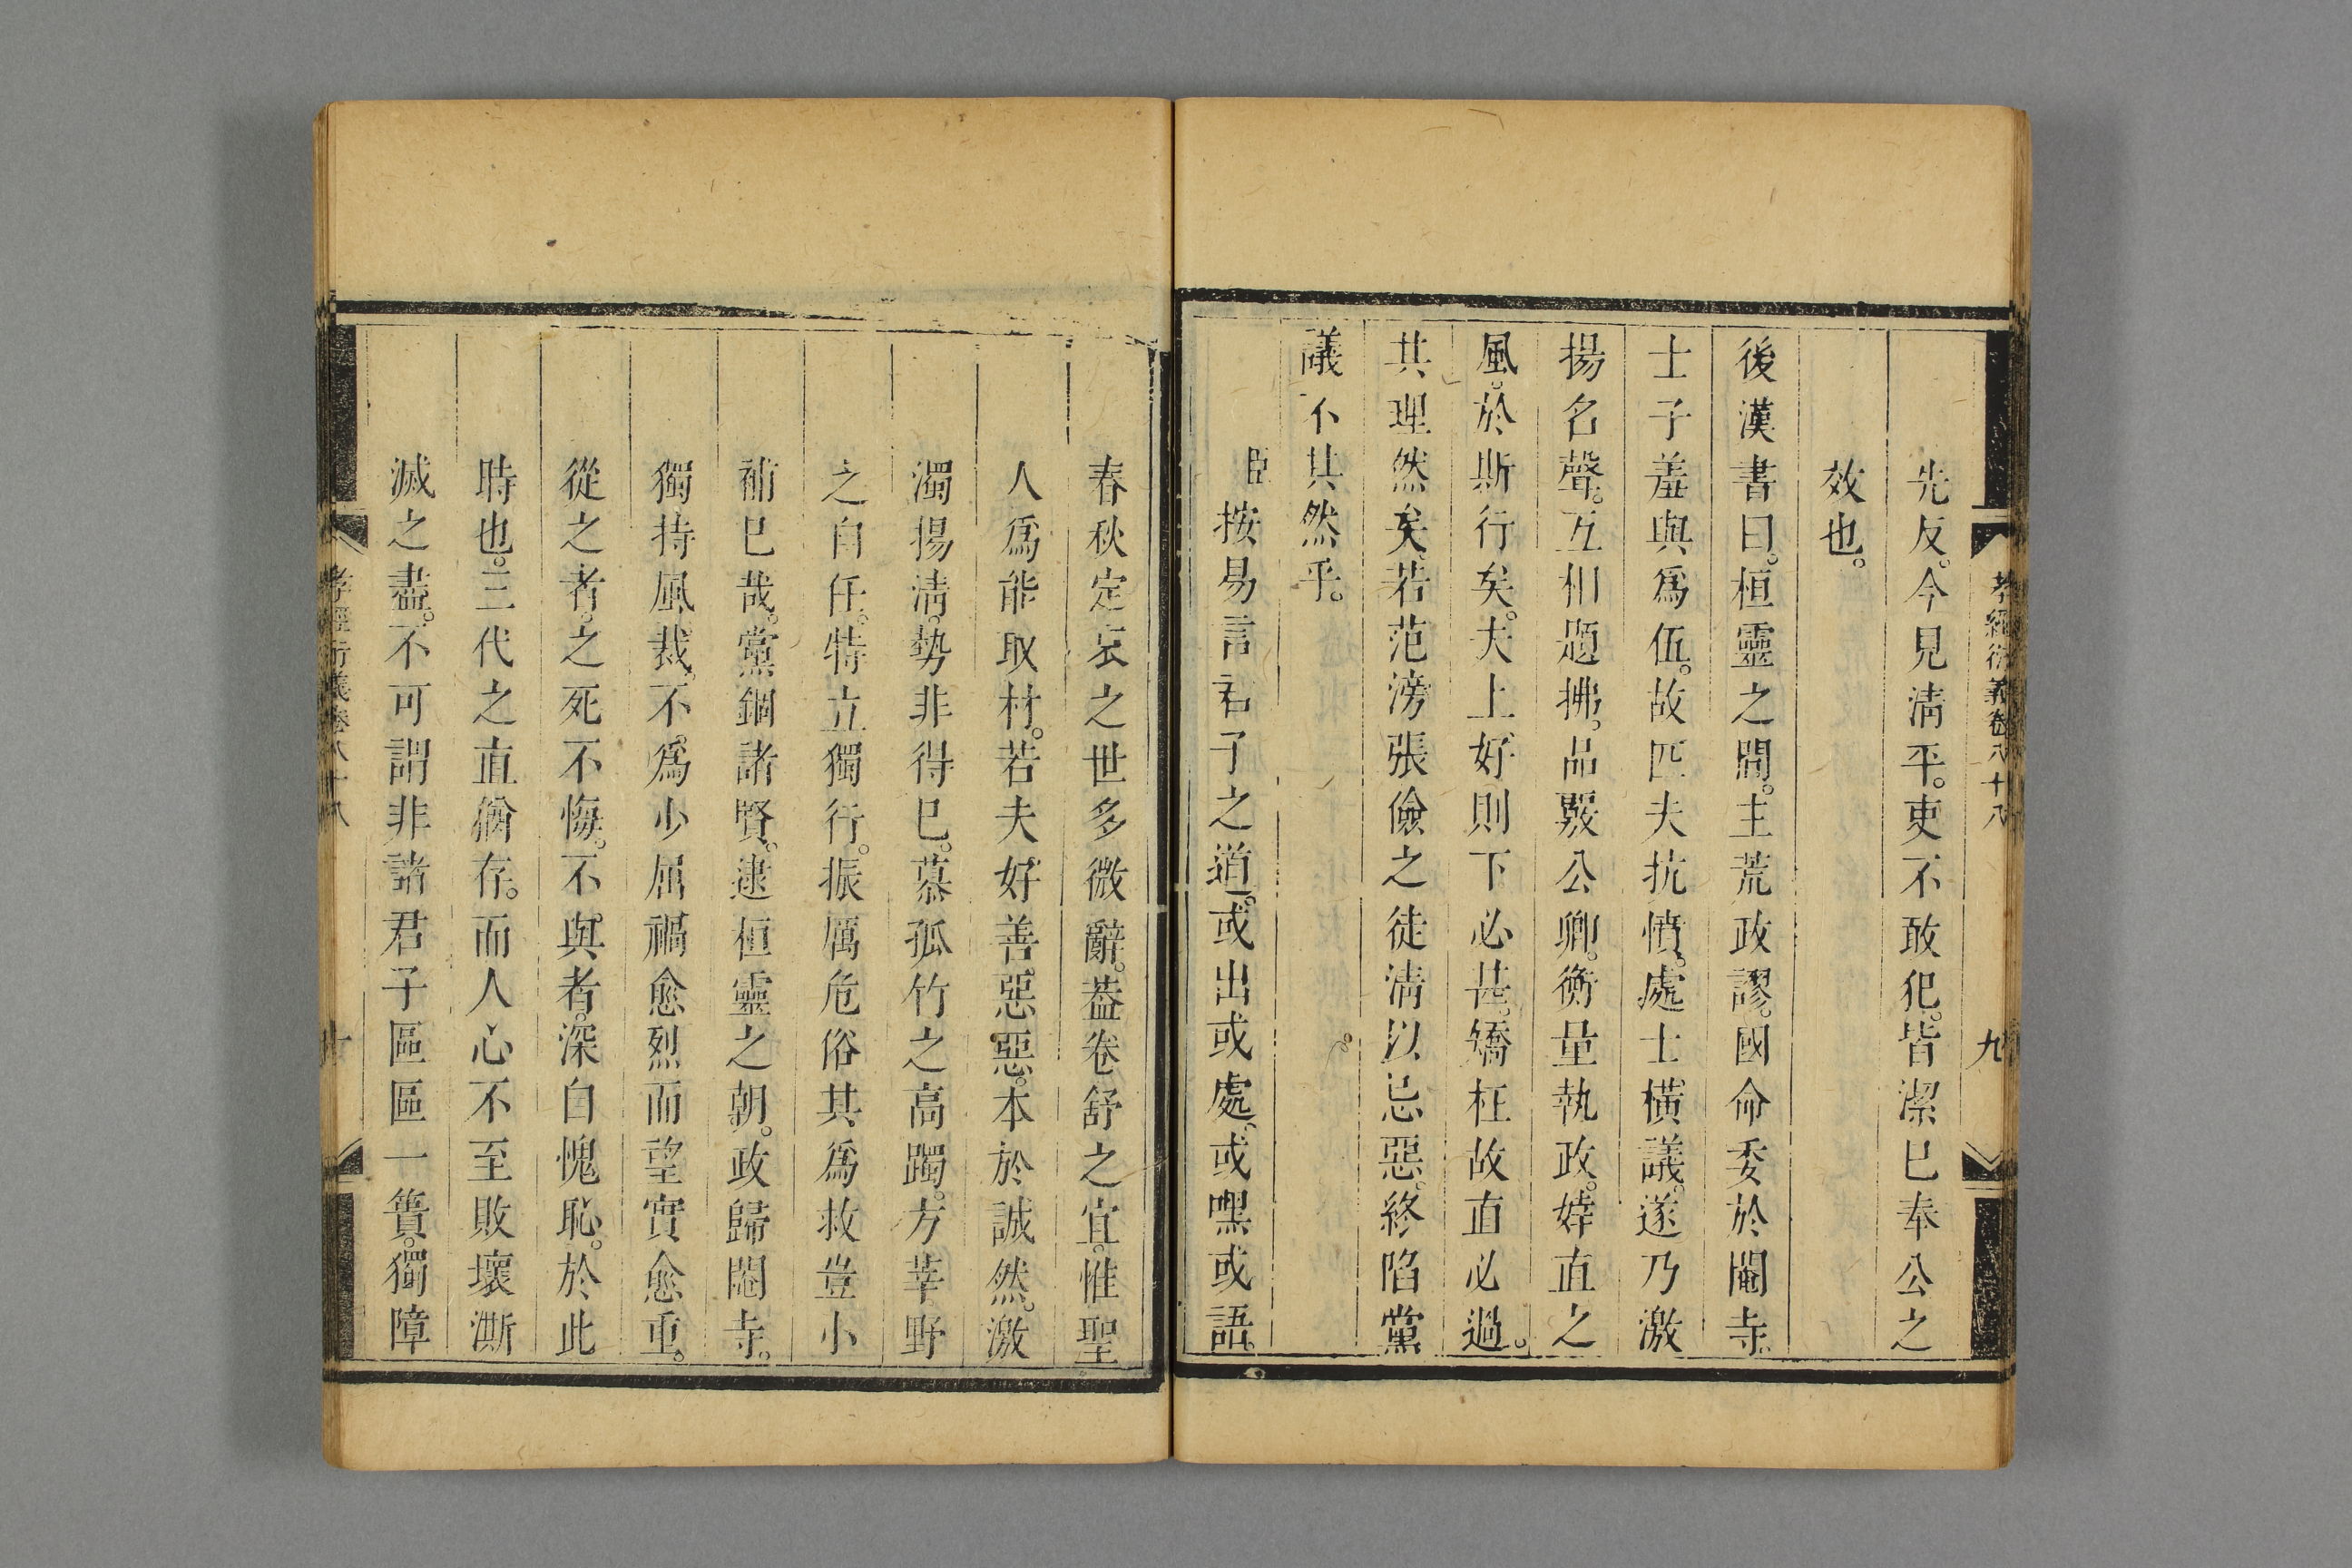 孝經衍義卷八十八 九
先友。今見淸平。吏不敢犯。皆潔巳奉公之
效也。
後漢書曰。桓靈之間。主荒政謬。國命委於閹寺。
士子羞與爲伍。故匹夫抗憤。處士橫議。遂乃激
揚名聲。互相題拂。品覈公卿。衡量執政。婞直之
風。於斯行矣。夫上好則下必甚。矯枉故直必過。
其理然矣。若范滂張儉之徒淸以忌惡。終陷黨
議不其然乎。
臣按易言君子之道。或出或處。或嘿或語。
春秋定哀之世多微辭。葢卷舒之宜。惟聖
人爲能取材。若夫好善惡惡。本於誠然。激
濁揚淸。勢非得巳。慕孤竹之高躅。方莘野
之自任。特立獨行。振厲危俗其爲救豈小
補巳哉。黨錮諸賢。逮桓靈之朝。政歸閹寺。
獨持風裁。不爲少屈禍愈烈而望實愈重。
從之者。之死不悔。不與者。深自愧恥。於此
時也。三代之直猶存。而人心不至敗壞澌
滅之盡。不可謂非諸君子區區一簣。獨障
孝經衍義卷八十八 十